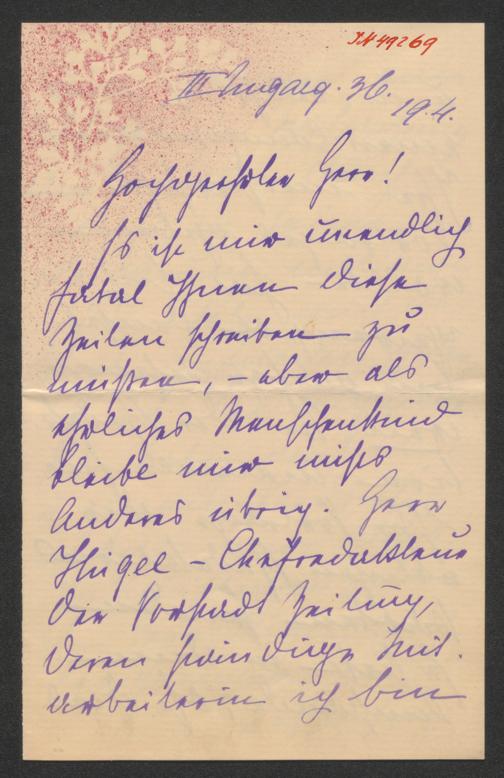 IN 49269
III Ungarg. 36.
19.4.
Hochgeehrter Herr!
Es ist mir unendlich
fatal Ihnen diese
Zeilen schreiben zu
müssen, – aber als
ehrliches Menschenkind
bleibt mir nichts
Anderes übrig. Herr
Hügel – Chefredakteur
der Vorstadt Zeitung,
deren ständige Mit-
arbeiterin ich bin